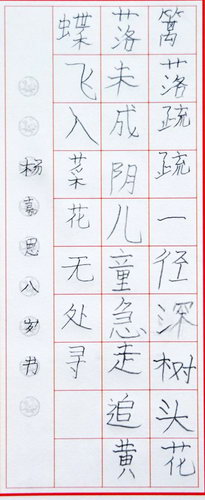 篱落疏疏一径深树头花
落未成阴儿童急走追黄
蝶飞入菜花无处寻
杨嘉恩八岁书